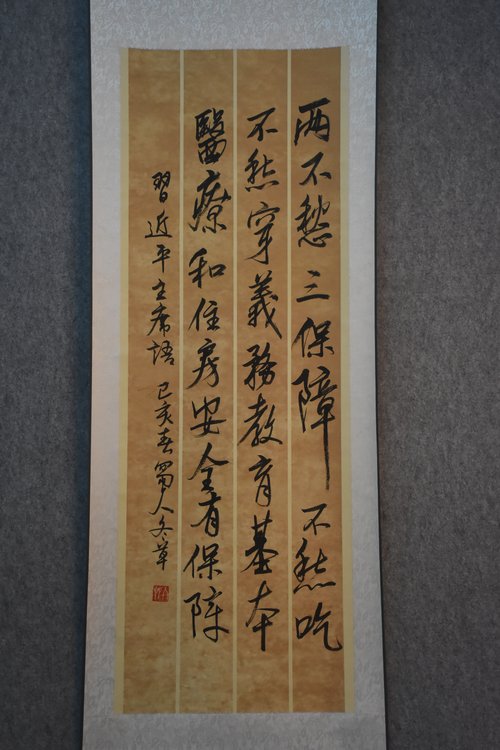 两不愁三保障 不愁吃
不愁穿義務教育基本
醫療和住房安全有保障
習近平主席語 己亥春蜀人冬草